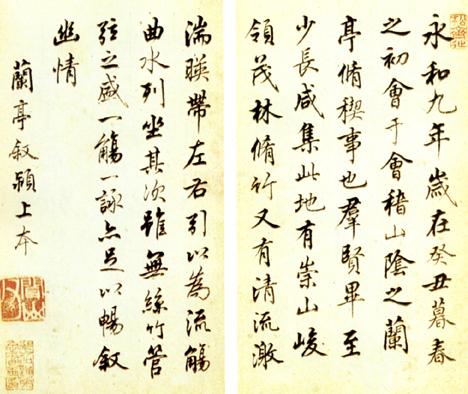 永和九年歲在癸丑暮春
之初會于會稽山陰之蘭
亭脩稧事也羣賢畢至
少長咸集此地有崇山峻
領茂林脩竹又有清流激
湍暎帶左右引以為流觴
曲水列坐其次雖無絲竹管
弦之盛一觴一詠亦足以暢叙
幽情
蘭亭叙潁上本